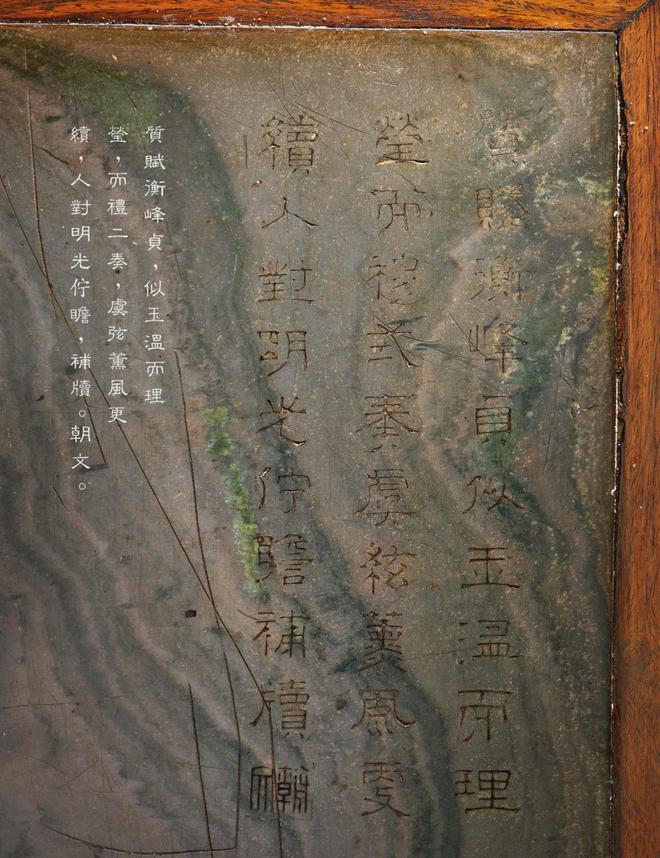 質賦衡峰貞似玉溫而理
瑩而禮弍奏虞絃薰風更
續人對明光佇瞻補牘
質賦衡峰貞,似玉溫而理
瑩,而禮二奏,虞弦薰風更
續,人對明光佇瞻,補牘。朝文。